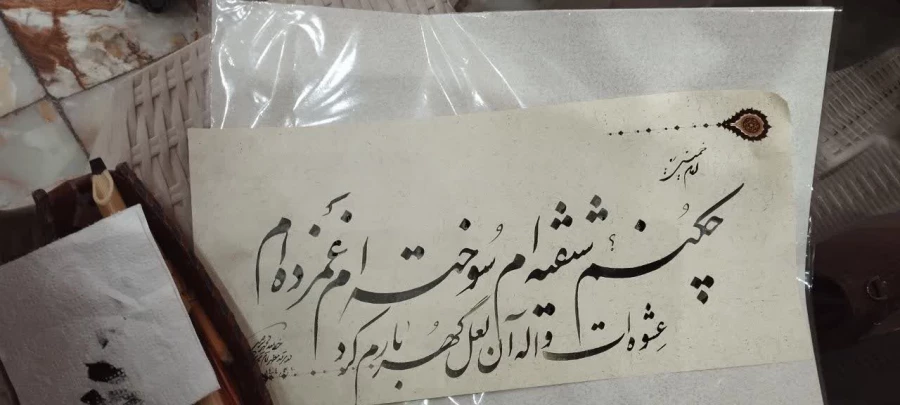 امام خمینی
چکنم؟ شیفته ام سوخته ام غمزده ام
عشوه ات واله آن لعل گهربارم کرد